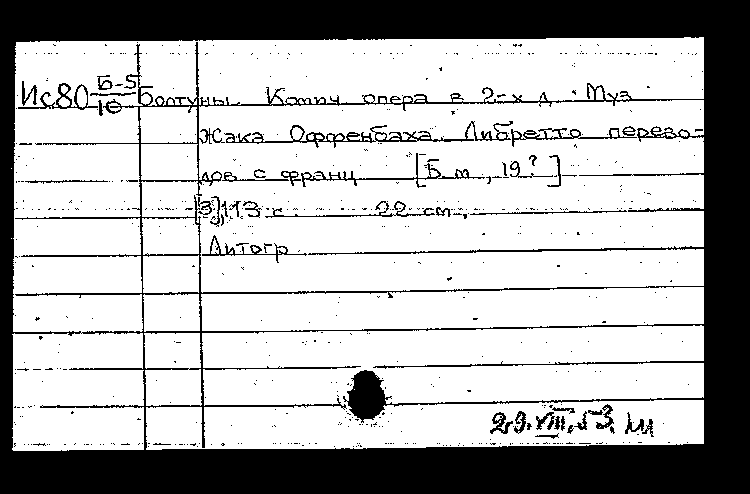 Ис80 Б-5/10 Болтуны. Комич. опера в 2-х д. Муз.
Жака Оффенбаха. Либретто перево-
дов с франц. [Б.м., 19?]
[3],113 с. 22 см.
Литогр.
29.VIII.53.